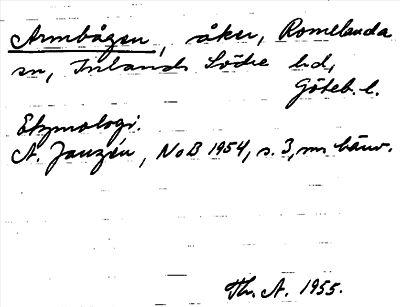 Armbågen, åker, Romelanda
sn, Inlands Södre hd,
Göteb. l.
Etymologi.
A. Janzén, NoB 1954, s. 3, m hänv.
Th. A. 1955.